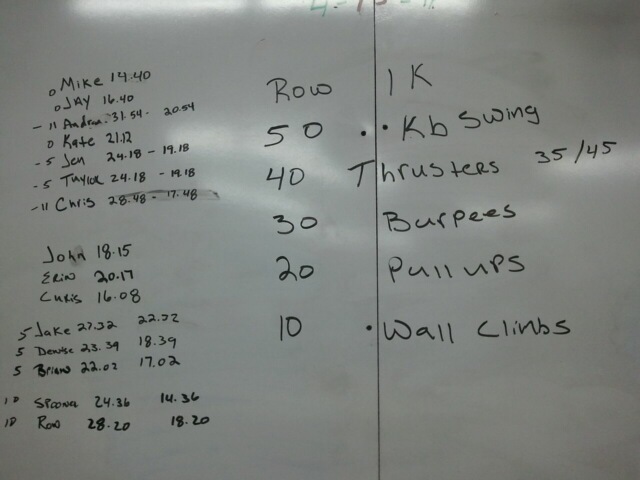 o Mike 14.40
o JAY 16.40
- 11 Andrea 31.54 - 20.54
o Kate 21.12
- 5 Jen 24.18 - 19.18
- 5 Taylor 24.18 - 19.18
- 11 Chris 28.48 - 17.48
John 18.15
ERIN 20.17
CHRIS 16.08
5 Jake 27.32 22.32
5 Denise 23.39 18.39
5 Brian 22.02 17.02
10 Spooner 24.36 14.36
10 Ron 28.20 18.20
Row 1K
50 Kb Swing
40 Thrusters 35/45
30 Burpees
20 Pull ups
10 Wall Climbs